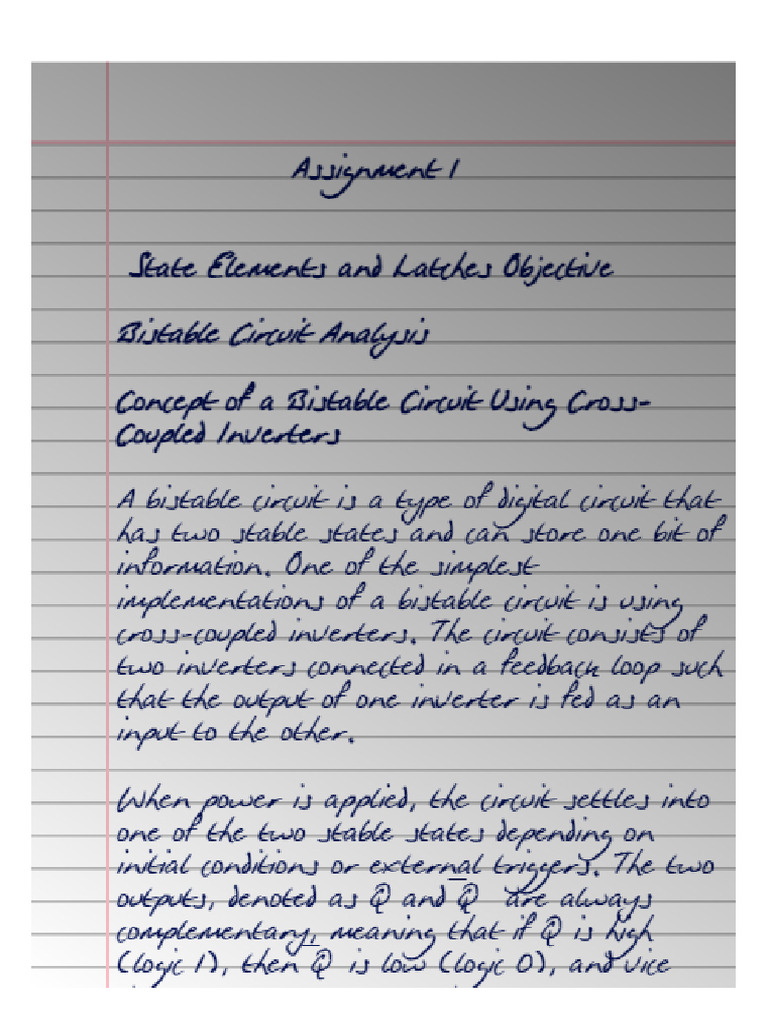 Assignment 1
State Elements and Latches Objective
Bistable Circuit Analysis
Concept of a Bistable Circuit Using Cross-
Coupled Inverters
A bistable circuit is a type of digital circuit that
has two stable states and can store one bit of
information. One of the simplest
implementations of a bistable circuit is using
cross-coupled inverters. The circuit consists of
two inverters connected in a feedback loop such
that the output of one inverter is fed as an
input to the other.
When power is applied, the circuit settles into
one of the two stable states depending on
initial conditions or external triggers. The two
outputs, denoted as Q and Q̅ are always
complementary, meaning that if Q is high
(logic 1), then Q̅ is low (logic 0), and vice